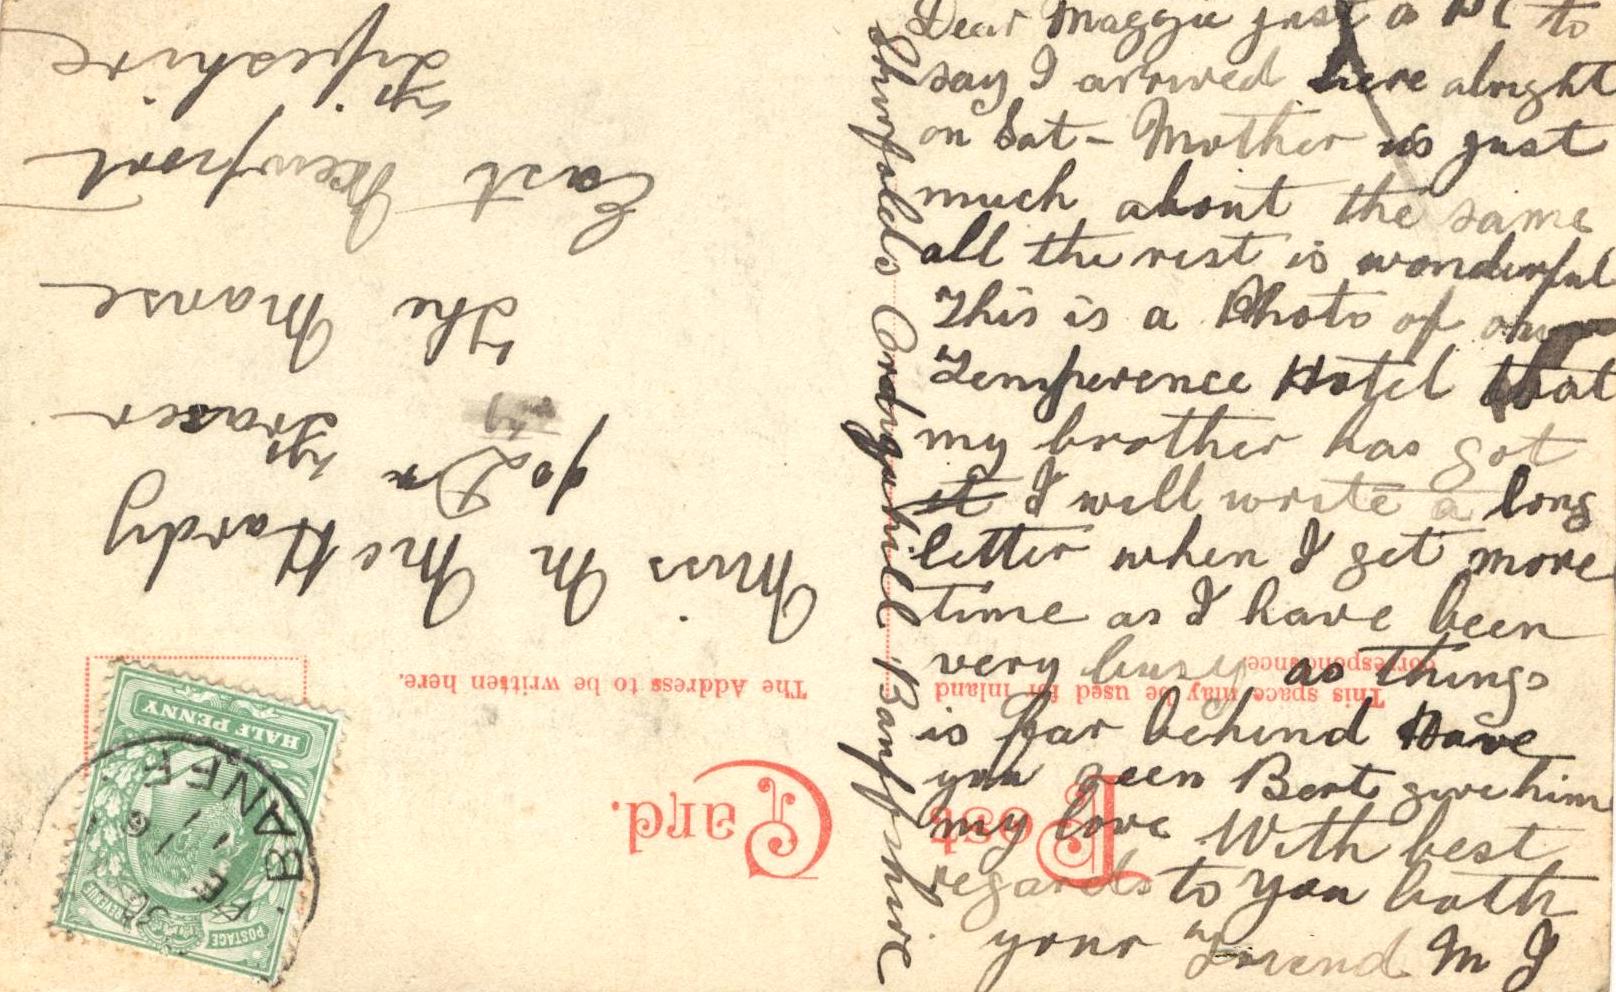 Dear Maggie just a PC to
say I arrived here alright
on Sat - Mother is just
much about the same
all the rest is wonderful
This is a Photo of our
Temperence Hotel that
my brother has got
it I will write a long
letter when I get more
time as I have been
very busy as things
is far behind Have
you seen Bert give him
my love With best
regards to you both
your Friend M J
Shirfolds Ordiquhill Banffshire
Post Card.
This space may be used for inland
correspondence
The Address to be written here.
Miss M McHardy
c/o Dr Fraser
The Manse
East Newport
Fifeshire
POSTAGE REVENUE
HALF PENNY
BANFF